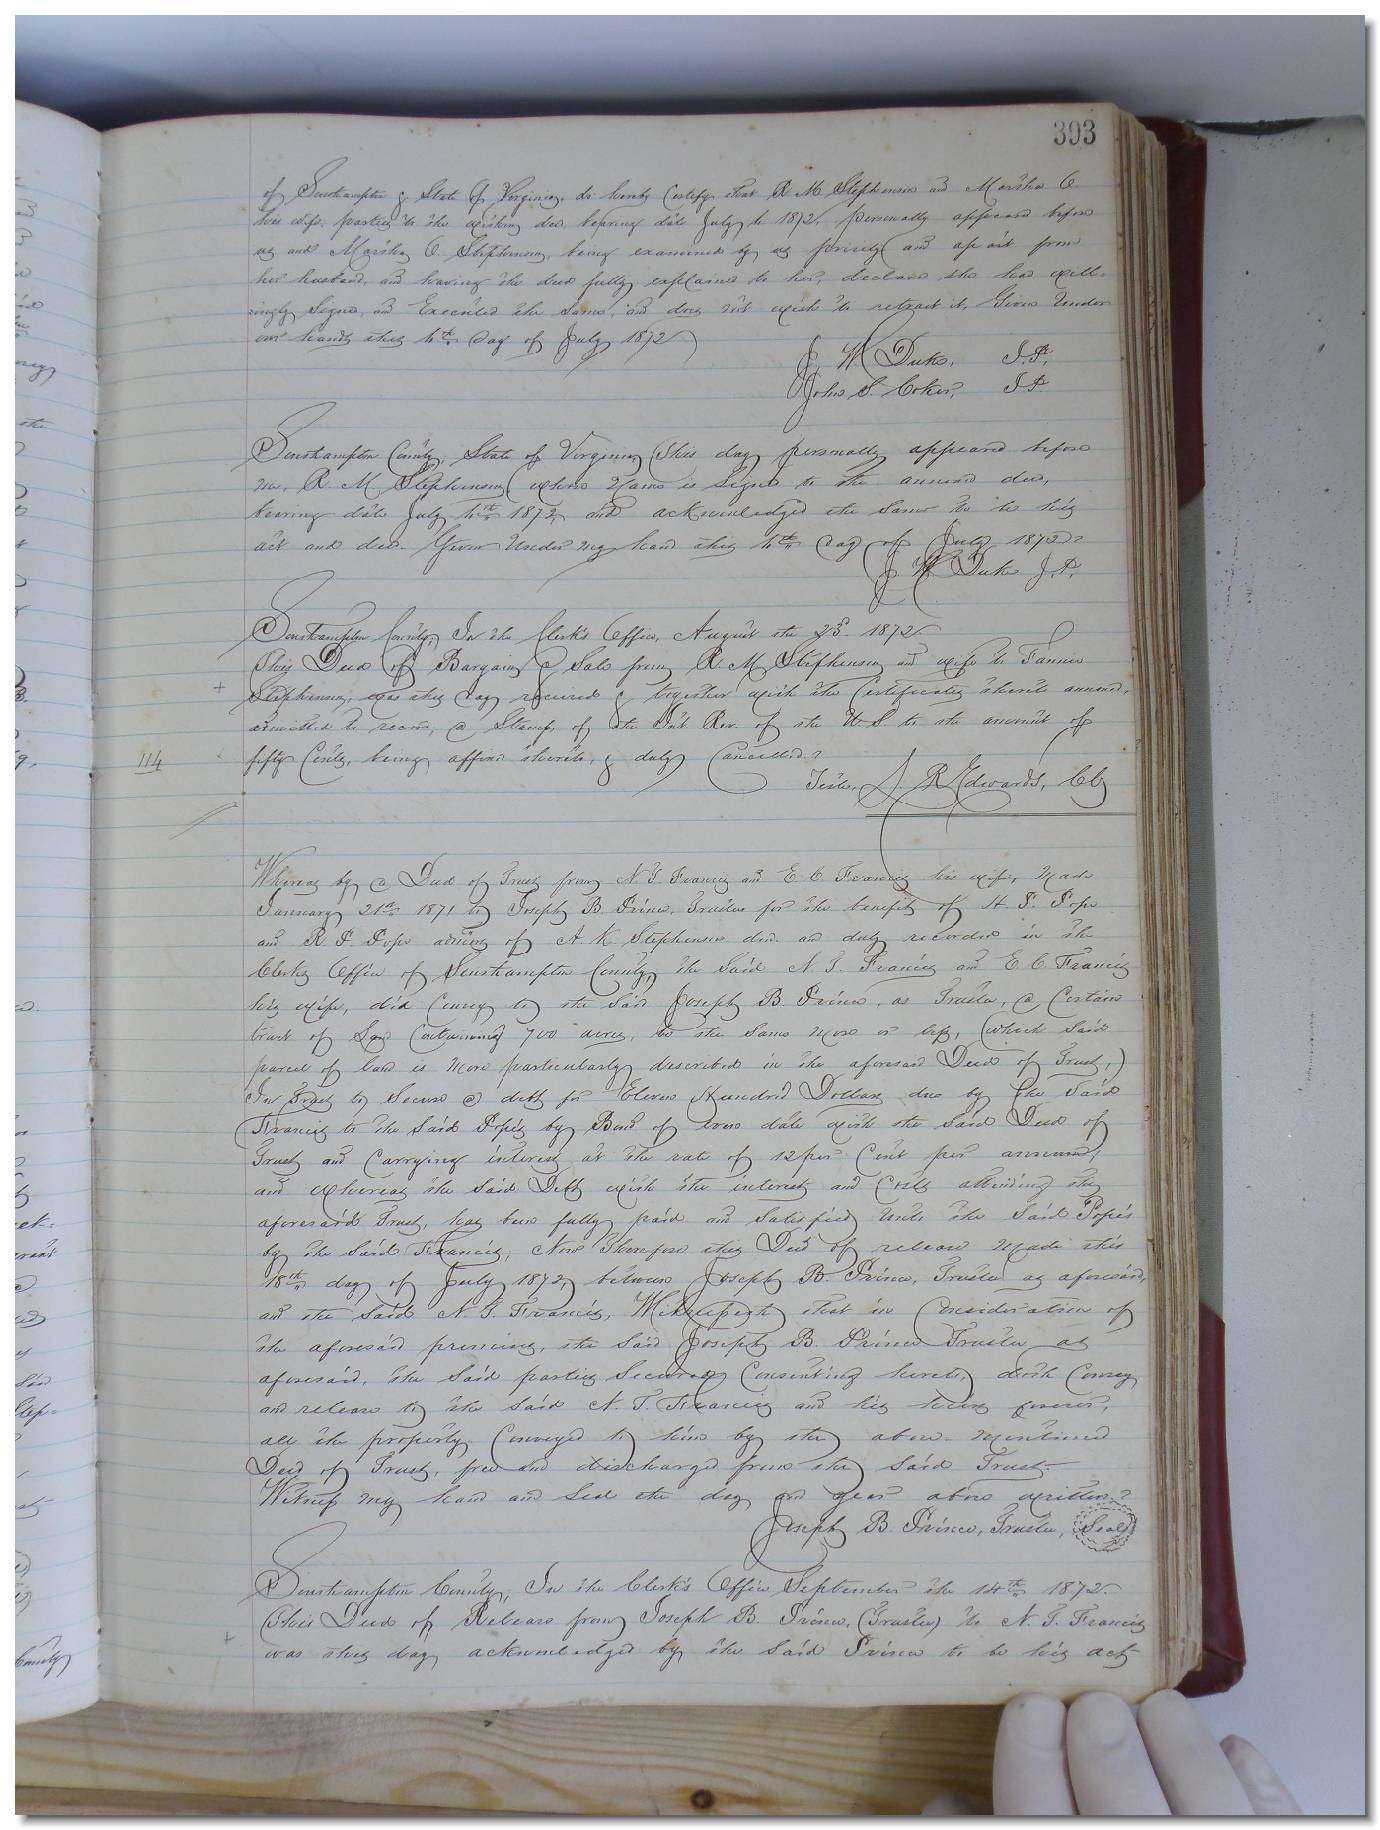 303
of Southampton & State of Virginia, do hereby Certify that R. M. Stephenson and Martha C.
his wife, parties to the within deed bearing date July 4th 1872, personally appeared before
us and Martha C. Stephenson, being examined by us privily and apart from
her husband, and having the deed fully explained to her, declared she had will-
ingly Signed, and Executed the Same, and does not wish to retract it, Given Under
our hands this 4th day of July 1872
J. W. Duke, J.P.
John S. Coker, J.P.
Southampton County, State of Virginia, This day personally appeared before
me, R. M. Stephenson, whose Name is Signed to the annexed deed,
bearing date July 4th 1872, and acknowledged the Same to be his
act and deed. Given Under my hand this 4th day of July 1872.
J. W. Duke J.P.
Southampton County, In the Clerk's Office, August the 23d 1872
This Deed of Bargain & Sale from R. M. Stephenson and wife to Fannie
+ Stephenson, was this day received & together with the Certificates thereto annexed,
admitted to record, a Stamp of the Int Rev. of the U.S. to the amount of
114 fifty Cents, being affixed thereto, & duly Cancelled.
Teste, L. R. Edwards, Clk
Whereas by a Deed of Trust from N. T. Francis and E. C. Francis his wife, Made
January 21st 1871 to Joseph B. Prince, Trustee for the benefit of H. P. Pope
and R. P. Pope of A. K. Stephenson decd. and duly recorded in the
Clerks Office of Southampton County, the Said N. T. Francis and E. C. Francis
his wife, did Convey to the Said Joseph B. Prince, as Trustee, a Certain
tract of Land Containing 700 acres, be the Same More or less, (which Said
parcel of land is More particularly described in the aforesaid Deed of Trust,)
In Trust to Secure a debt for Eleven Hundred Dollars due by the Said
Francis to the Said Pope's by Bond of even date with the Said Deed of
Trust and Carrying interest at the rate of 12 per Cent per annum;
and whereas the Said Debt with the interest and Costs attending the
aforesaid Trust, has been fully paid and Satisfied unto the Said Pope's
by the Said Francis, Now Therefore this Deed of release Made this
18th day of July 1872, between Joseph B. Prince, Trustee as aforesaid,
and the Said N. T. Francis, Witnesseth that in Consideration of
the aforesaid premises, the Said Joseph B. Prince Trustee as
aforesaid, the Said parties Secured Consenting hereto, doth Convey
and release to the Said N. T. Francis and his heirs forever,
all the property Conveyed to him by the above Mentioned
Deed of Trust, free and discharged from the Said Trust.
Witness my hand and Seal the day and year above written.
Joseph B. Prince, Trustee, Seal
Southampton County, In the Clerk's Office September the 14th 1872.
This Deed of Release from Joseph B. Prince, (Trustee) to N. T. Francis
+ was this day acknowledged by the Said Prince to be his act